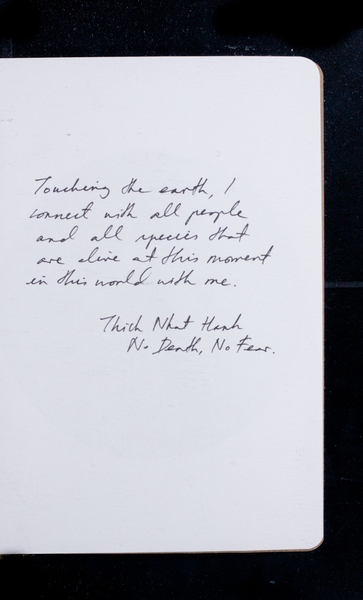 Touching the earth, I
connect with all people
and all species that
are alive at this moment
in this world with me.
Thich Nhat Hanh
No Death, No Fear.